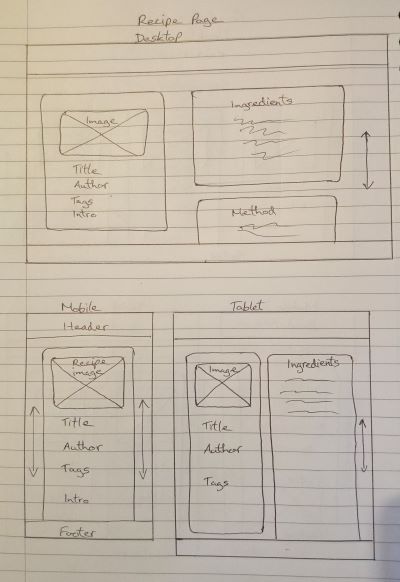 Recipe Page
Desktop
Image
Title
Author
Tags
Intro
Ingredients
Method
Mobile
Header
Recipe
image
Title
Author
Tags
Intro
Footer
Tablet
Image
Title
Author
Tags
Ingredients